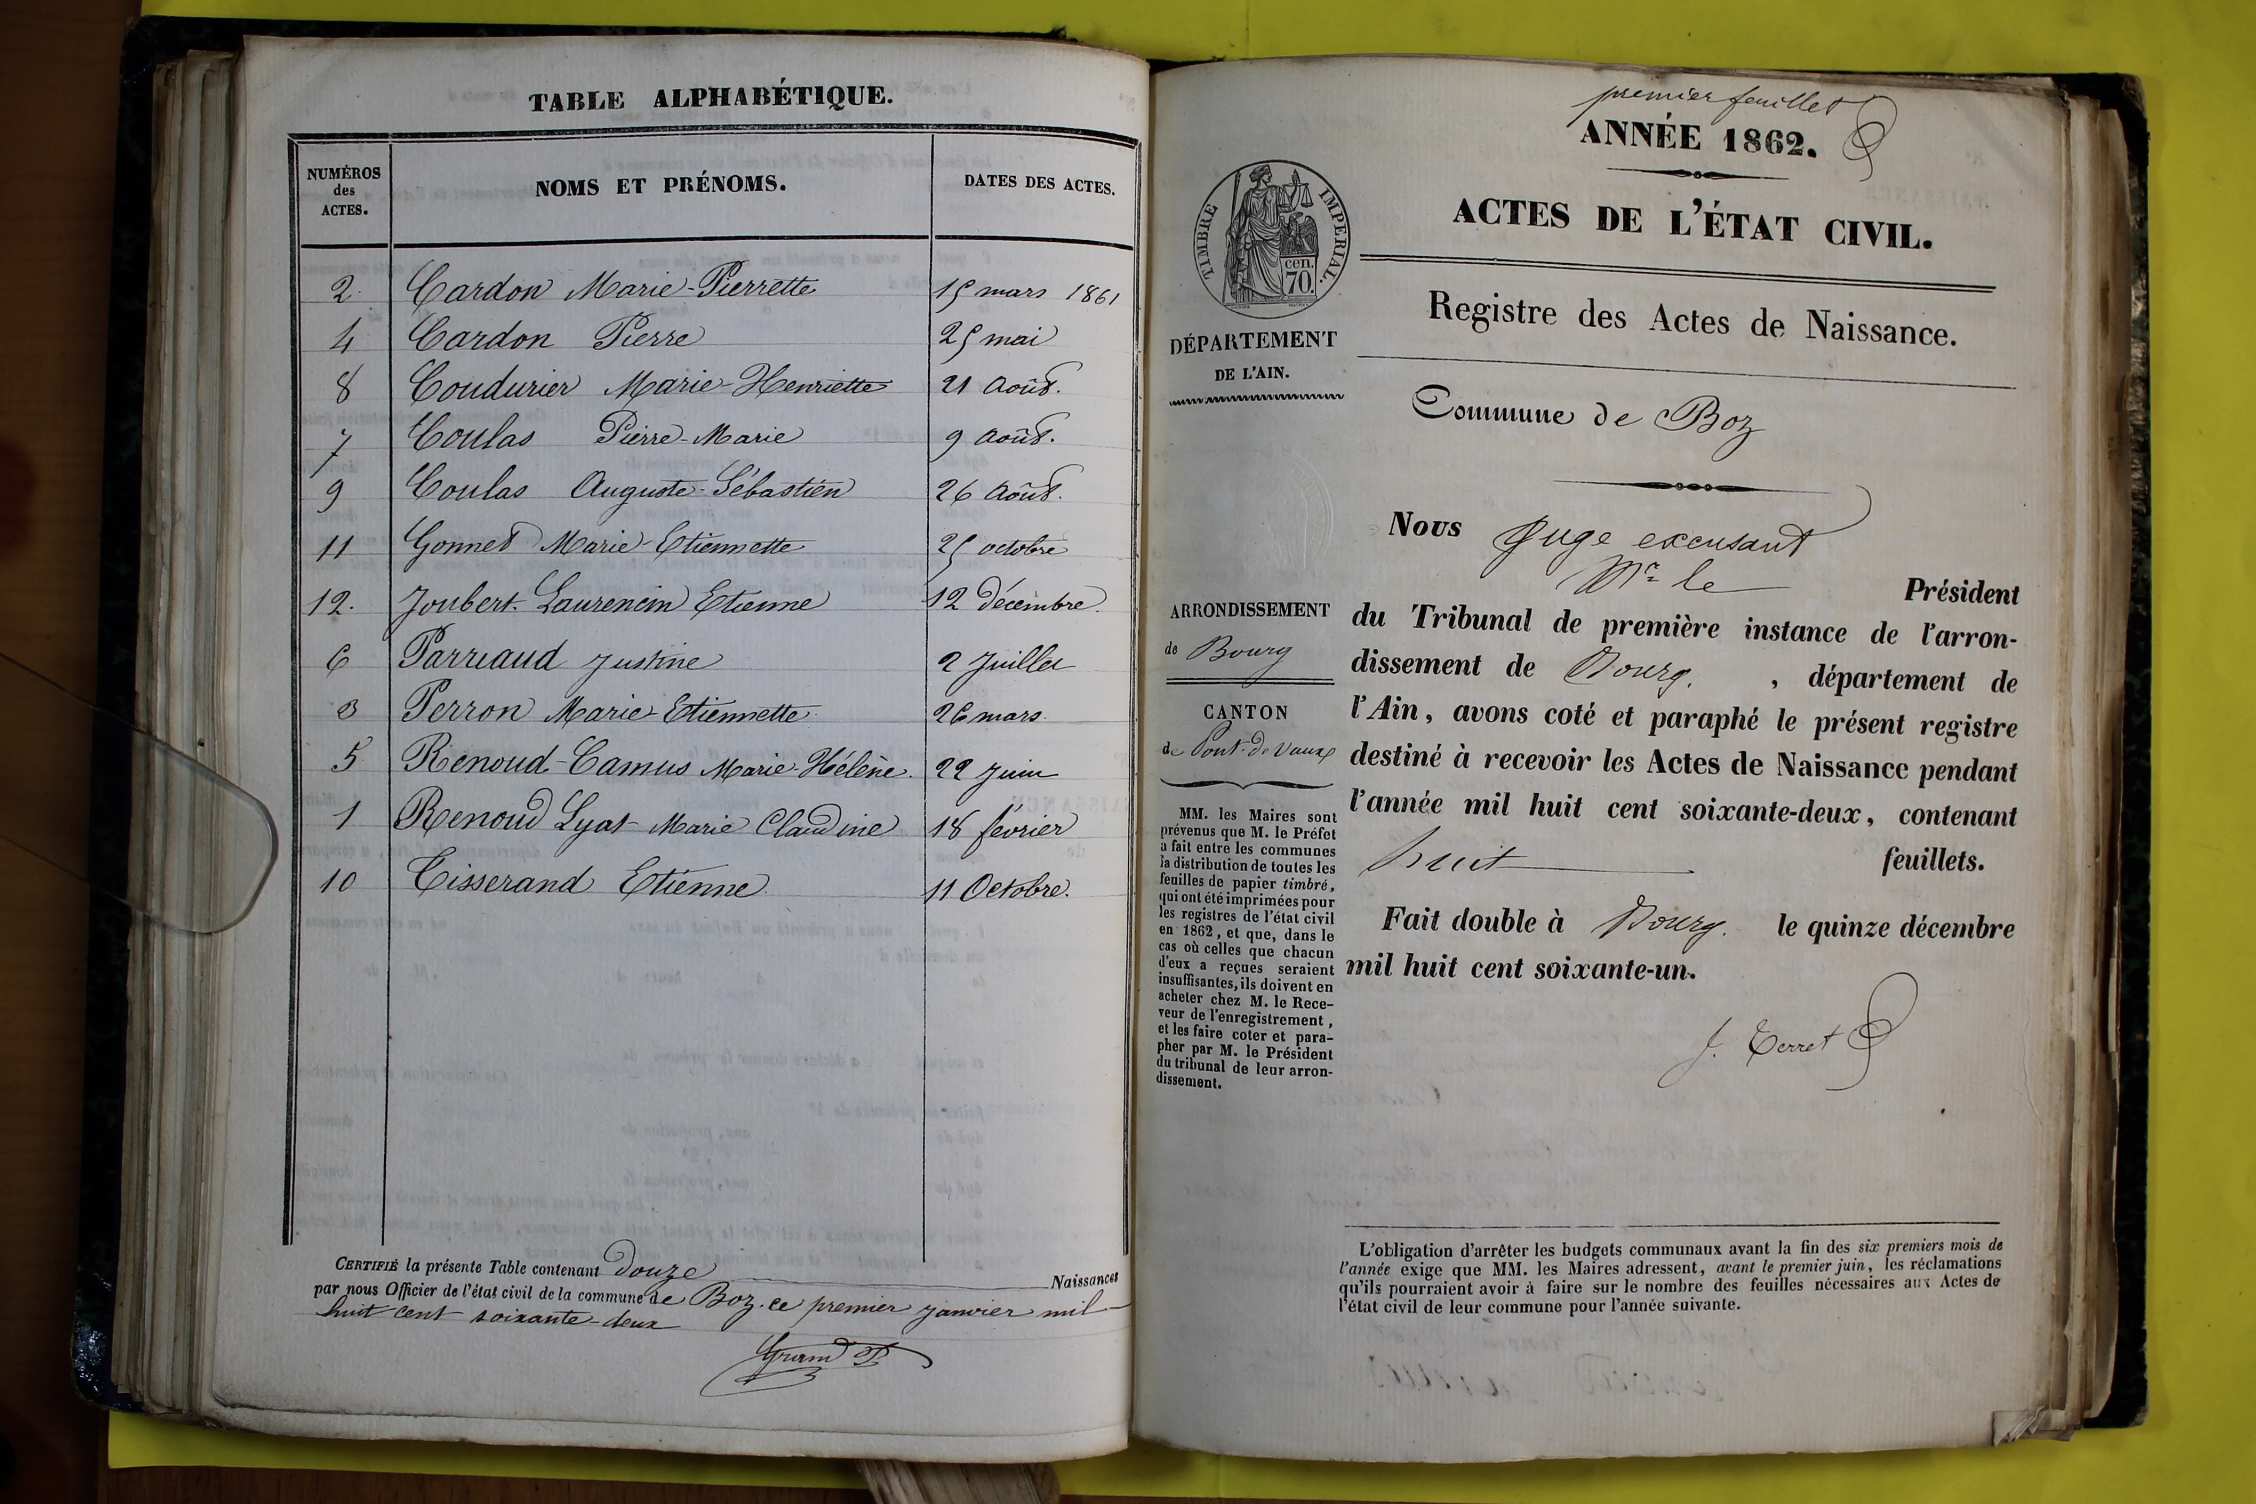 TABLE ALPHABÉTIQUE.
NUMÉROS des ACTES. NOMS ET PRÉNOMS. DATES DES ACTES.
2. Cardon Marie-Pierrette 15 mars 1861
4 Cardon Pierre 25 mai
8 Coudurier Marie-Henriette 21 Août.
7 Coulas Pierre-Marie 9 Août.
9 Coulas Auguste-Sébastien 26 Août.
11 Gonnet Marie-Etiennette 25 octobre
12. Joubert-Laurencin Etienne 12 Décembre.
6 Parriaud Justine 2 Juillet
3 Perron Marie-Etiennette 26 mars.
5 Renoud-Camus Marie-Hélène. 22 Juin
1 Renoud Lyat Marie Claudine 18 février
10 Tisserand Etienne 11 Octobre.
CERTIFIÉ la présente Table contenant Douze Naissances
par nous Officier de l'état civil de la commune de Boz. ce premier janvier mil
huit cent soixante-deux
Grand P
premier feuillet
ANNÉE 1862.
TIMBRE IMPERIAL.
cen.
70.
ACTES DE L'ÉTAT CIVIL.
Registre des Actes de Naissance.
DÉPARTEMENT
DE L'AIN.
Commune de Boz
ARRONDISSEMENT
de Bourg
CANTON
de Pont-de-Vaux
MM. les Maires sont
prévenus que M. le Préfet
a fait entre les communes
la distribution de toutes les
feuilles de papier timbré,
qui ont été imprimées pour
les registres de l'état civil
en 1862, et que, dans le
cas où celles que chacun
d'eux a reçues seraient
insuffisantes, ils doivent en
acheter chez M. le Rece-
veur de l'enregistrement,
et les faire coter et para-
pher par M. le Président
du tribunal de leur arron-
dissement.
Nous Juge excusant
Mr le Président
du Tribunal de première instance de l'arron-
dissement de Bourg. , département de
l'Ain, avons coté et paraphé le présent registre
destiné à recevoir les Actes de Naissance pendant
l'année mil huit cent soixante-deux, contenant
huit feuillets.
Fait double à Bourg. le quinze décembre
mil huit cent soixante-un.
J. Terret
L'obligation d'arrêter les budgets communaux avant la fin des six premiers mois de
l'année exige que MM. les Maires adressent, avant le premier juin, les réclamations
qu'ils pourraient avoir à faire sur le nombre des feuilles nécessaires aux Actes de
l'état civil de leur commune pour l'année suivante.